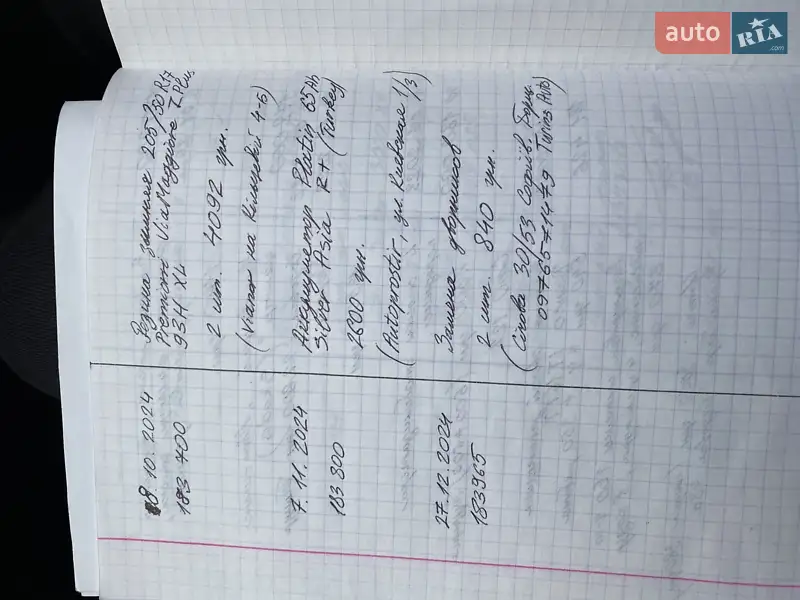 auto RIA .com
18.10.2024
183 400
Резина зимняя 205/50 R17
Premiorri ViaMaggiore Z Plus
93H XL
2 шт. 4092 грн.
(Vianor на Кільцевій 4-Б)
7.11.2024
183 800
Аккумулятор Platin 65Ah
Silver Asia R+ (Turkey)
2600 грн.
(Autoprostir, ул. Киевская 1/3)
27.12.2024
183965
Замена дворников
2 шт. 840 грн.
(Сікова 30/53 Софіїв. Борщ.
0976571479 Twins Auto)